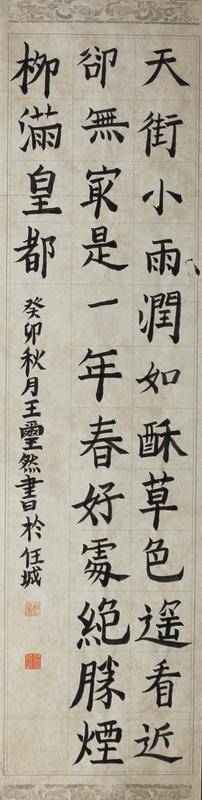 天街小雨潤如酥草色遥看近
卻無冣是一年春好處絶勝煙
柳滿皇都
癸卯秋月王璽然書於任城